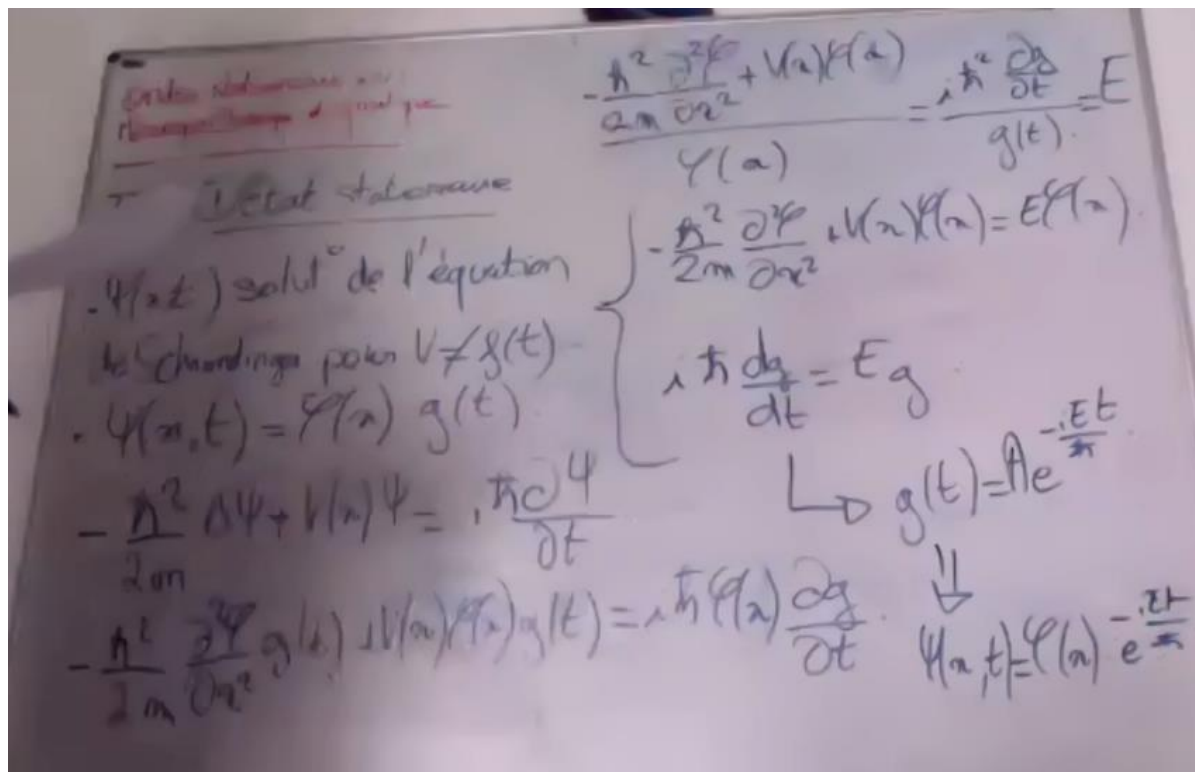 1) Etat stationnaire
. Ψ(x,t) solut° de l'équation
de Schrodinger pour V≠f(t)
. Ψ(x,t) = φ(x) g(t)
- ℏ²/2m ΔΨ + V(x)Ψ = i ℏ∂Ψ/∂t
- ℏ²/2m ∂²φ/∂x² g(t) + V(x)φ(x)g(t) = i ℏ φ(x) ∂g/∂t
(- ℏ²/2m ∂²φ/∂x² + V(x)φ(x))/φ(x) = (i ℏ² ∂g/∂t)/g(t) = E
- ℏ²/2m ∂²φ/∂x² + V(x)φ(x) = Eφ(x)
i ℏ dg/dt = E g
↳ g(t) = A e^(-iEt/ℏ)
⇓
Ψ(x,t) = φ(x) e^(-iEt/ℏ)